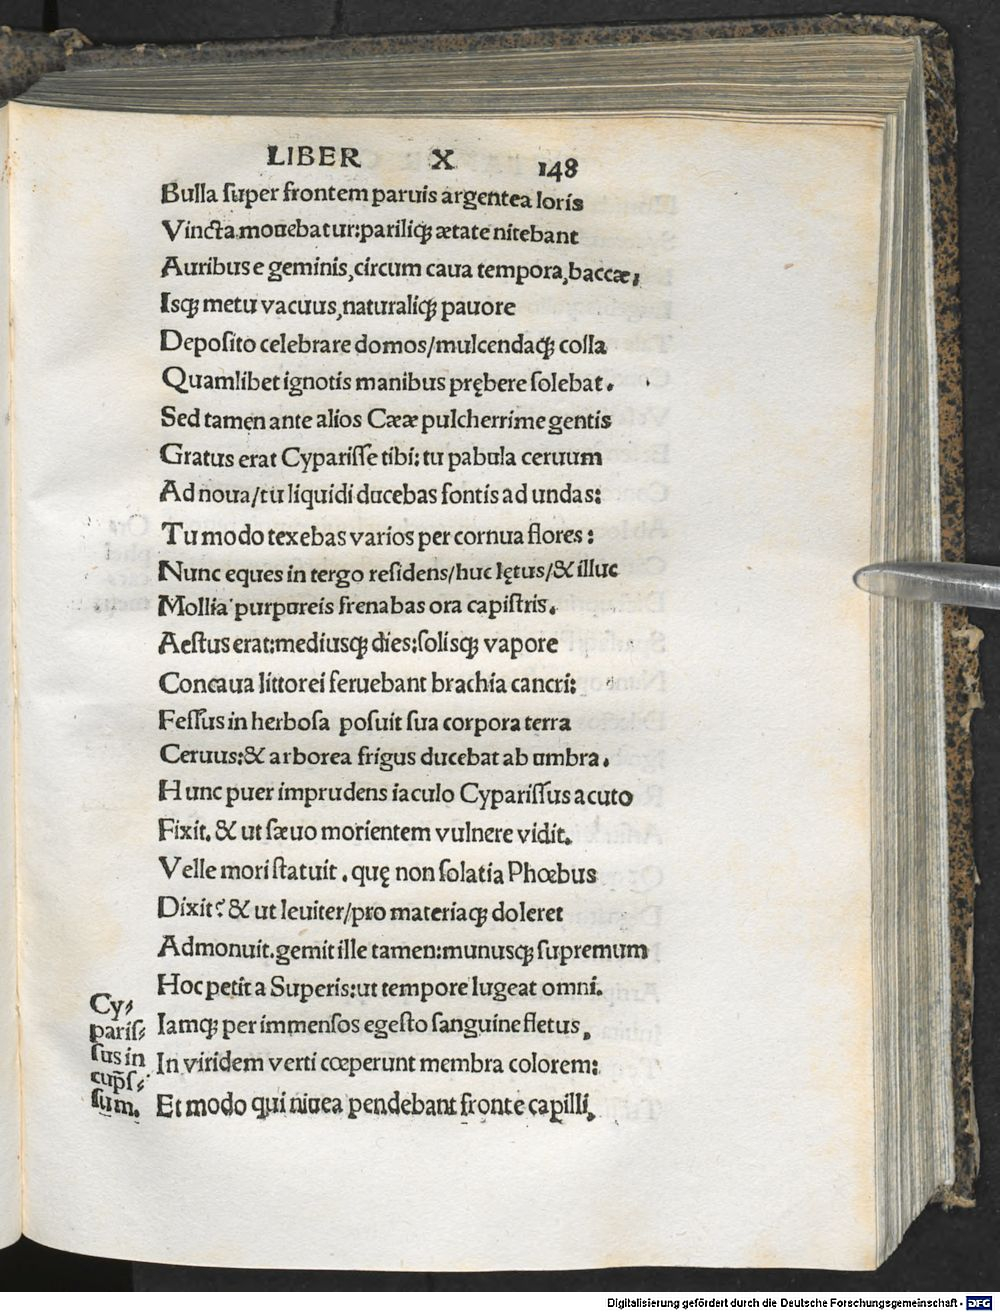 LIBER X 148
Bulla ſuper frontem paruis argentea loris
Vincta mouebatur:pariliqꝫ ætate nitebant
Auribus e geminis,circum caua tempora,baccæ,
Isqꝫ metu vacuus,naturaliqꝫ pauore
Depoſito celebrare domos/mulcendaqꝫ colla
Quamlibet ignotis manibus prębere ſolebat.
Sed tamen ante alios Cææ pulcherrime gentis
Gratus erat Cypariſſe tibi: tu pabula ceruum
Ad noua/tu liquidi ducebas fontis ad undas:
Tu modo texebas varios per cornua flores:
Nunc eques in tergo reſidens/huc lętus/& illuc
Mollia purpureis frenabas ora capiſtris.
Aeſtus erat:mediusqꝫ dies:ſolisqꝫ vapore
Concaua littorei feruebant brachia cancri:
Feſſus in herboſa poſuit ſua corpora terra
Ceruus:& arborea frigus ducebat ab umbra.
Hunc puer imprudens iaculo Cypariſſus acuto
Fixit. & ut ſæuo morientem vulnere vidit.
Velle mori ſtatuit. quę non ſolatia Phœbus
Dixit? & ut leuiter/pro materiaqꝫ doleret
Admonuit.gemit ille tamen:munusqꝫ ſupremum
Hoc petit a Superis:ut tempore lugeat omni.
Iamqꝫ per immenſos egeſto ſanguine fletus,
In viridem verti cœperunt membra colorem:
Et modo qui niuea pendebant fronte capilli,
Cy⸗
pariſ⸗
ſus in
cup̄ſ⸗
ſum.
Digitalisierung gefördert durch die Deutsche Forschungsgemeinschaft - DFG